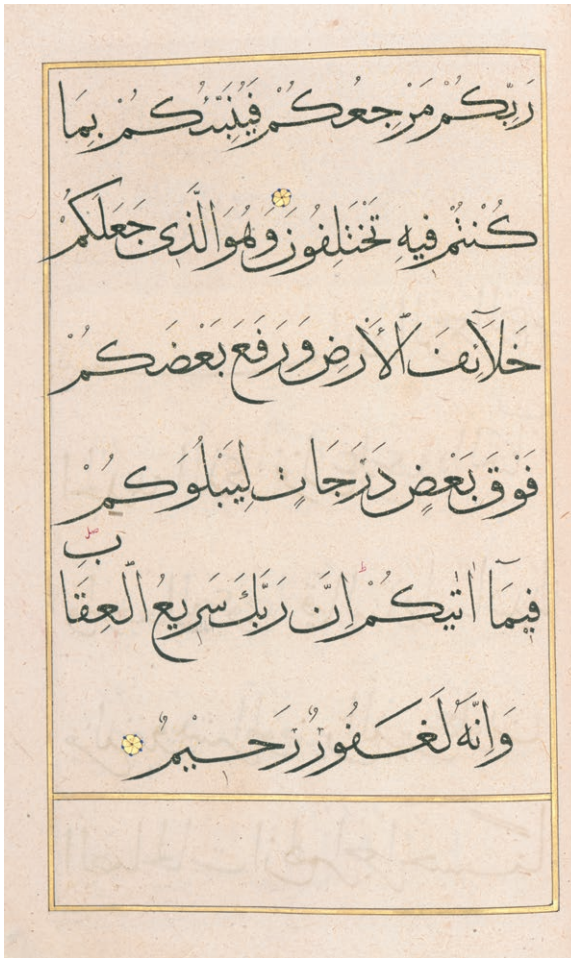 رَبِّكُمْ مَرْجِعُكُمْ فَيُنَبِّئُكُمْ بِمَا
كُنْتُمْ فِيهِ تَخْتَلِفُونَ وَهُوَ الَّذِى جَعَلَكُمْ
خَلَآئِفَ الْاَرْضِ وَرَفَعَ بَعْضَكُمْ
فَوْقَ بَعْضٍ دَرَجَاتٍ لِيَبْلُوَكُمْ
فِيمَآ اٰتٰيكُمْ ط اِنَّ رَبَّكَ سَرِيعُ الْعِقَابِ صلى
وَاِنَّهُ لَغَفُورٌ رَحِيمٌ